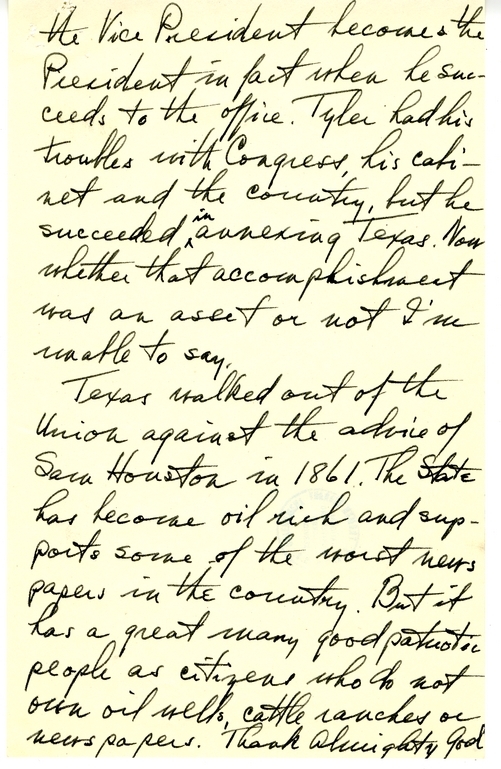 the Vice President becomes the
President in fact when he suc-
ceeds to the office. Tyler had his
troubles with Congress, his cabi-
net and the country, but he
succeeded in annexing Texas. Now
whether that accomplishment
was an asset or not I'm
unable to say.
Texas walked out of the
Union against the advice of
Sam Houston in 1861. The State
has become oil rich and sup-
ports some of the worst news
papers in the country. But it
has a great many good patriotic
people as citizens who do not
own oil wells, cattle ranches or
newspapers. Thank Almighty God